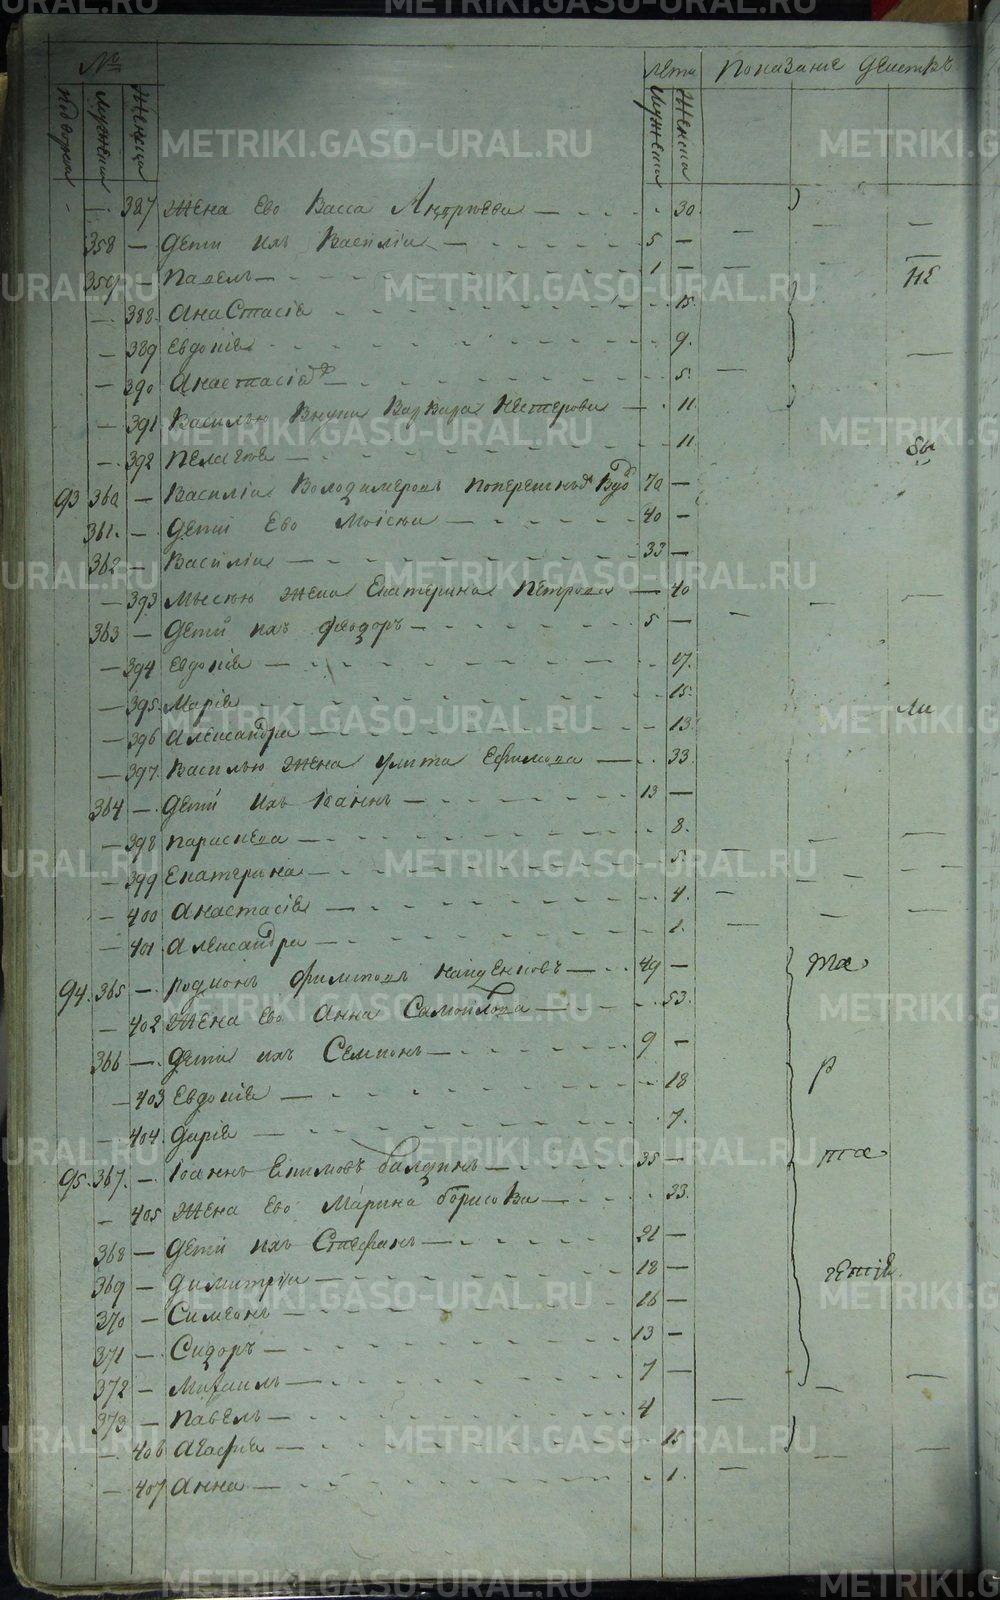 № лета Показание действъ
подворна мужеска женска мужеска женска
387 жена Ево Васса Андрѣева 30
358 дети ихъ Василiи 5
359 Павелъ 1
не
388 Анастасiя 15
389 Евдокiя 9
390 Анастасiя 5
391 Василью внуки Варвара Нестерова 11
392 Пелагея 11
бы
93 360 Василiи Володимеровъ вдо 70
361 дети Ево Моисеи 40
362 Василiи 33
393 жена Екатерина Петрова 40
363 дети ихъ Феодоръ 5
394 Евдокiя 17
395 Марiя 15
ли
396 Александра 13
397 Василью жена Улита Ефимова 33
364 дети ихъ Iоаннъ 13
398 Параскева 8
399 Екатерина 5
400 Анастасiя 4
401 Александра 1
94 365 Родионъ Филиповъ 49
402 жена Ево Анна Самойлова 53
366 дети ихъ Семионъ 9
р
403 Евдокiя 18
404 Дарiя 7
95 367 Iоаннъ Екимовъ Балдинъ 35
та
405 жена Ево Марина Борисова 33
368 дети ихъ Стефанъ 21
369 Димитрiи 18
370 Симеонъ 16
371 Сидоръ 13
372 Михаилъ 7
373 Павелъ 4
406 Агафiя 15
407 Анна 1
METRIKI.GASO-URAL.RU